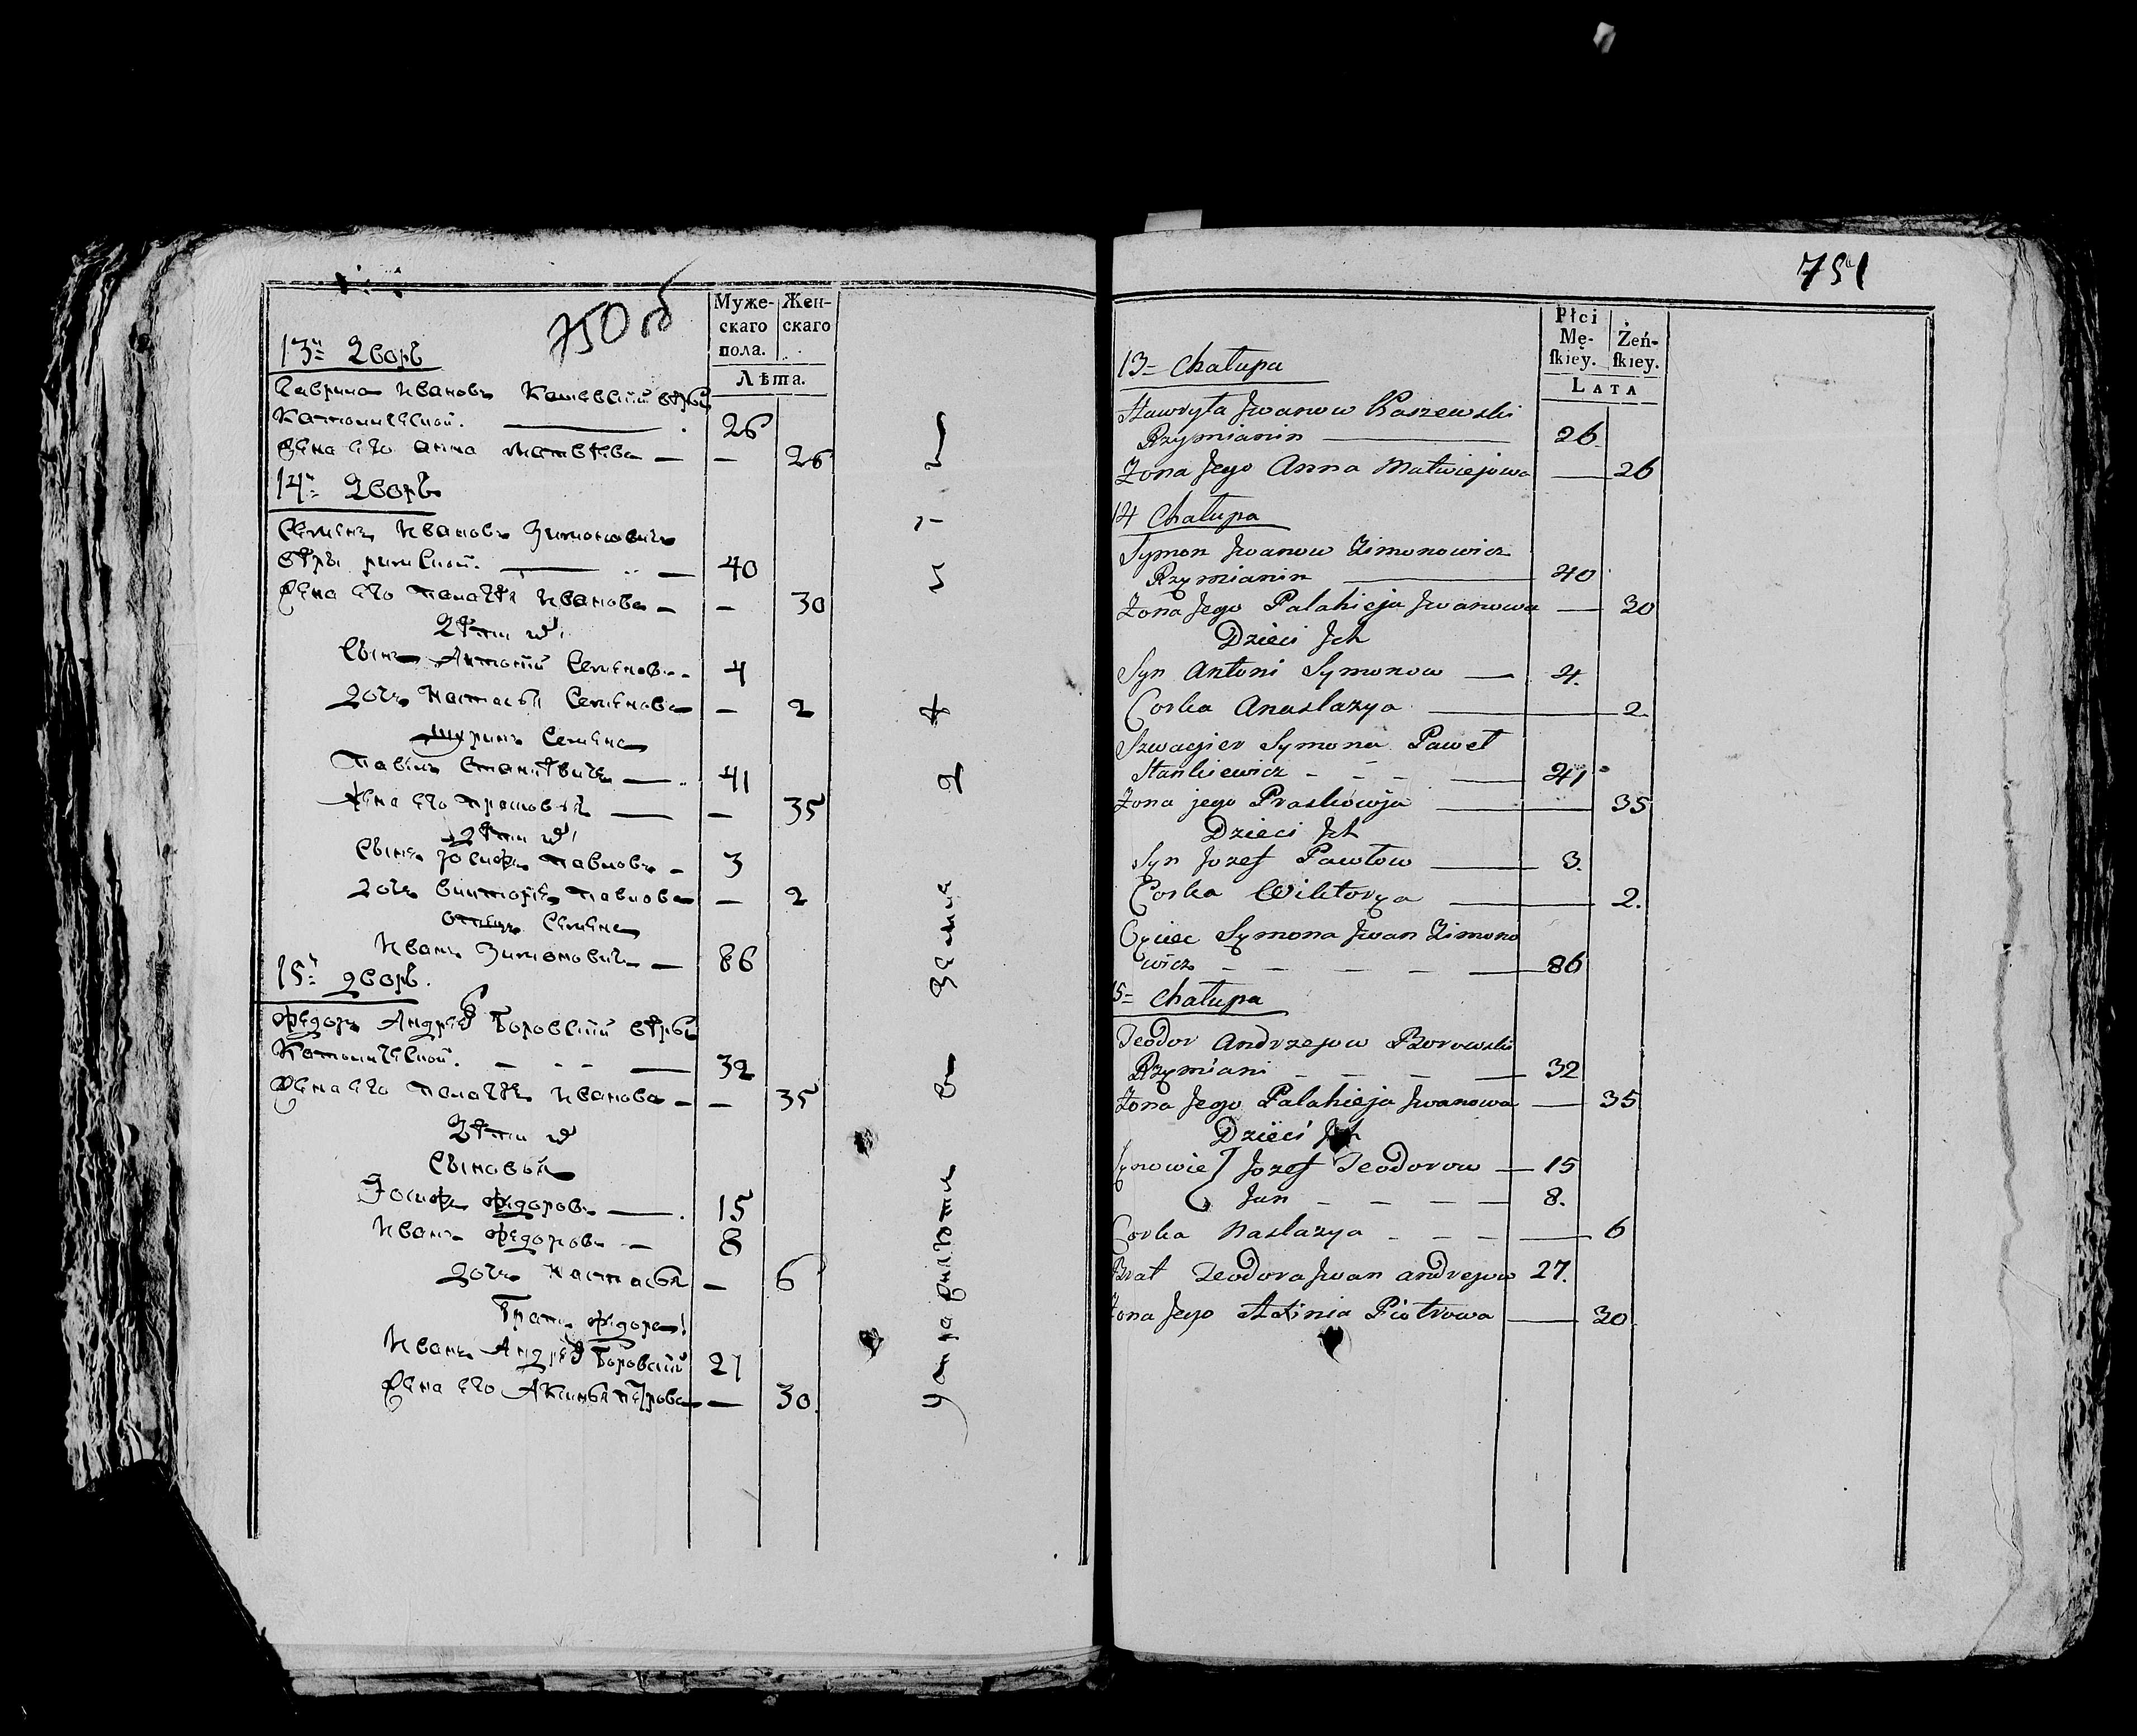 750 об
Муже-
скаго
пола.
Жен-
скаго
Лѣта.
13й Дворъ
Гаврила Ивановъ Кашевскій вѣры
Католической. 26
Жена его Анна Матвѣева — — 26
14й Дворъ
Семенъ Ивановъ Зимоновичъ
вѣры римской. — 40
Жена его Палагѣя Иванова — — 30
Дѣти их
Сынъ Антоній Семеновъ 4
Дочь Настасья Семенова — 2
Шуринъ Семена
Павелъ Станкѣвичъ — 41
Жена его Прасковья — — 35
Дѣти их
Сынъ Іосифъ Павловъ — 3
Дочь Викторія Павлова — 2
Отецъ Семена
Иванъ Зимоновичъ — 86
15й дворъ.
Федоръ Андреев Боровскій вѣры
Католической. — 32
Жена его Палагѣя Иванова — — 35
Дѣти их
Сыновья
Іосифъ Федоровъ — 15
Иванъ Федоровъ — 8
Дочь Настасья — 6
Братъ Федора
Иванъ Андреев Боровскій 27
Жена его Аксинья Петрова — 30.
751
Płci
Mę-
ſkiey.
Żeń-
ſkiey.
LATA
13= Chałupa
Hawryła Jwanow Kaszewski
Rzymianin — 26
Zona Jego Anna Matwiejowa — 26
14 Chałupa
Symon Jwanow Zimonowicz
Rzymianin — 40
Zona Jego Palahieja Jwanowa — 30
Dzieci Jch
Syn Antoni Symonow — 4.
Corka Anastazya — 2
Szwagier Symona Paweł
Stankiewicz - - - — 41
Zona jego Praskowja — 35
Dzieci Jch
Syn Jozef Pawłow — 3.
Corka Wiktorya — 2.
Oyciec Symona Jwan Zimono
wicz — — — — 86
15= Chałupa
Teodor Andrzejow Borowski
Rzymiani — — — 32
Zona Jego Palahieja Jwanowa — 35
Dzieci Jch
Synowie Jozef Teodorow — 15
Jan — — — 8.
Corka Nastazya - - - — 6
Brat Teodora Jwan Andrejow 27.
Zona Jego Axinia Piotrowa — 30.